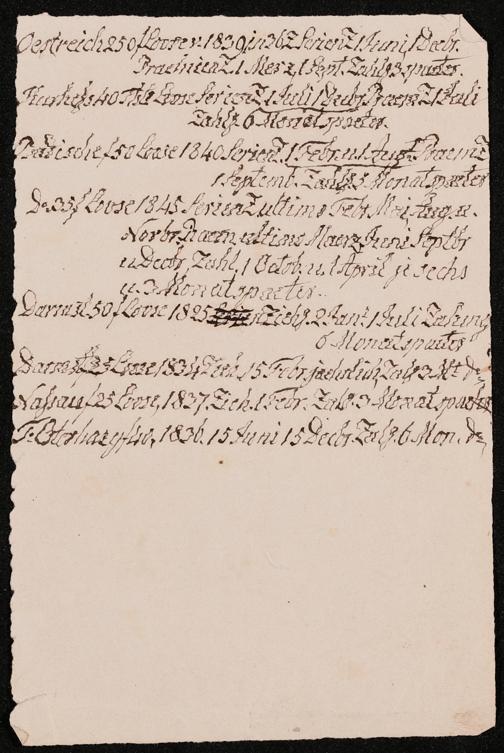 Oestreich 250 f Loose v. 1839 in 36 Z Serien Z 1 Juni 1 Decbr.
Praemien Z. 1 Merz, 1 Sept. Zahlg 3 spaeter.
Kurhess 40 Thlr Loose Serien Z 1 Juli 1 Decbr Praem Z 1 Juli
Zahlg 6 Monat spaeter
Badische f 50 Loose 1840 Serien Z. 1 Febr. u. 1 Aug. Praem Z
1 Septemb. Zahlg 3 Monat spaeter
Do 35 f Loose 1845 Serien Z ultimo Febr. Mai, Aug. u.
Novbr. Praem. ultimo Maerz, Juni Septbr
u Decbr, Zahl. 1 Octob. u. 1 April je sechs
u. 3 Monat spaeter.
Darmst 50 f Loose 1825 Ziehg. 2 Jan. 1 Juli Zahlung
6 Monat spaeter
Darmst f 25 Loose 1834 Zieh. 15 Febr. jaehrlich, Zahlg 3 Mt do
Nassau f 25 Loose, 1837. Zieh. 1 Febr. Zahlg. 3 Monat spaeter
F. Esterhazy f 40, 1836. 15 Juni 15 Decbr. Zahlg. 6 Mon. do